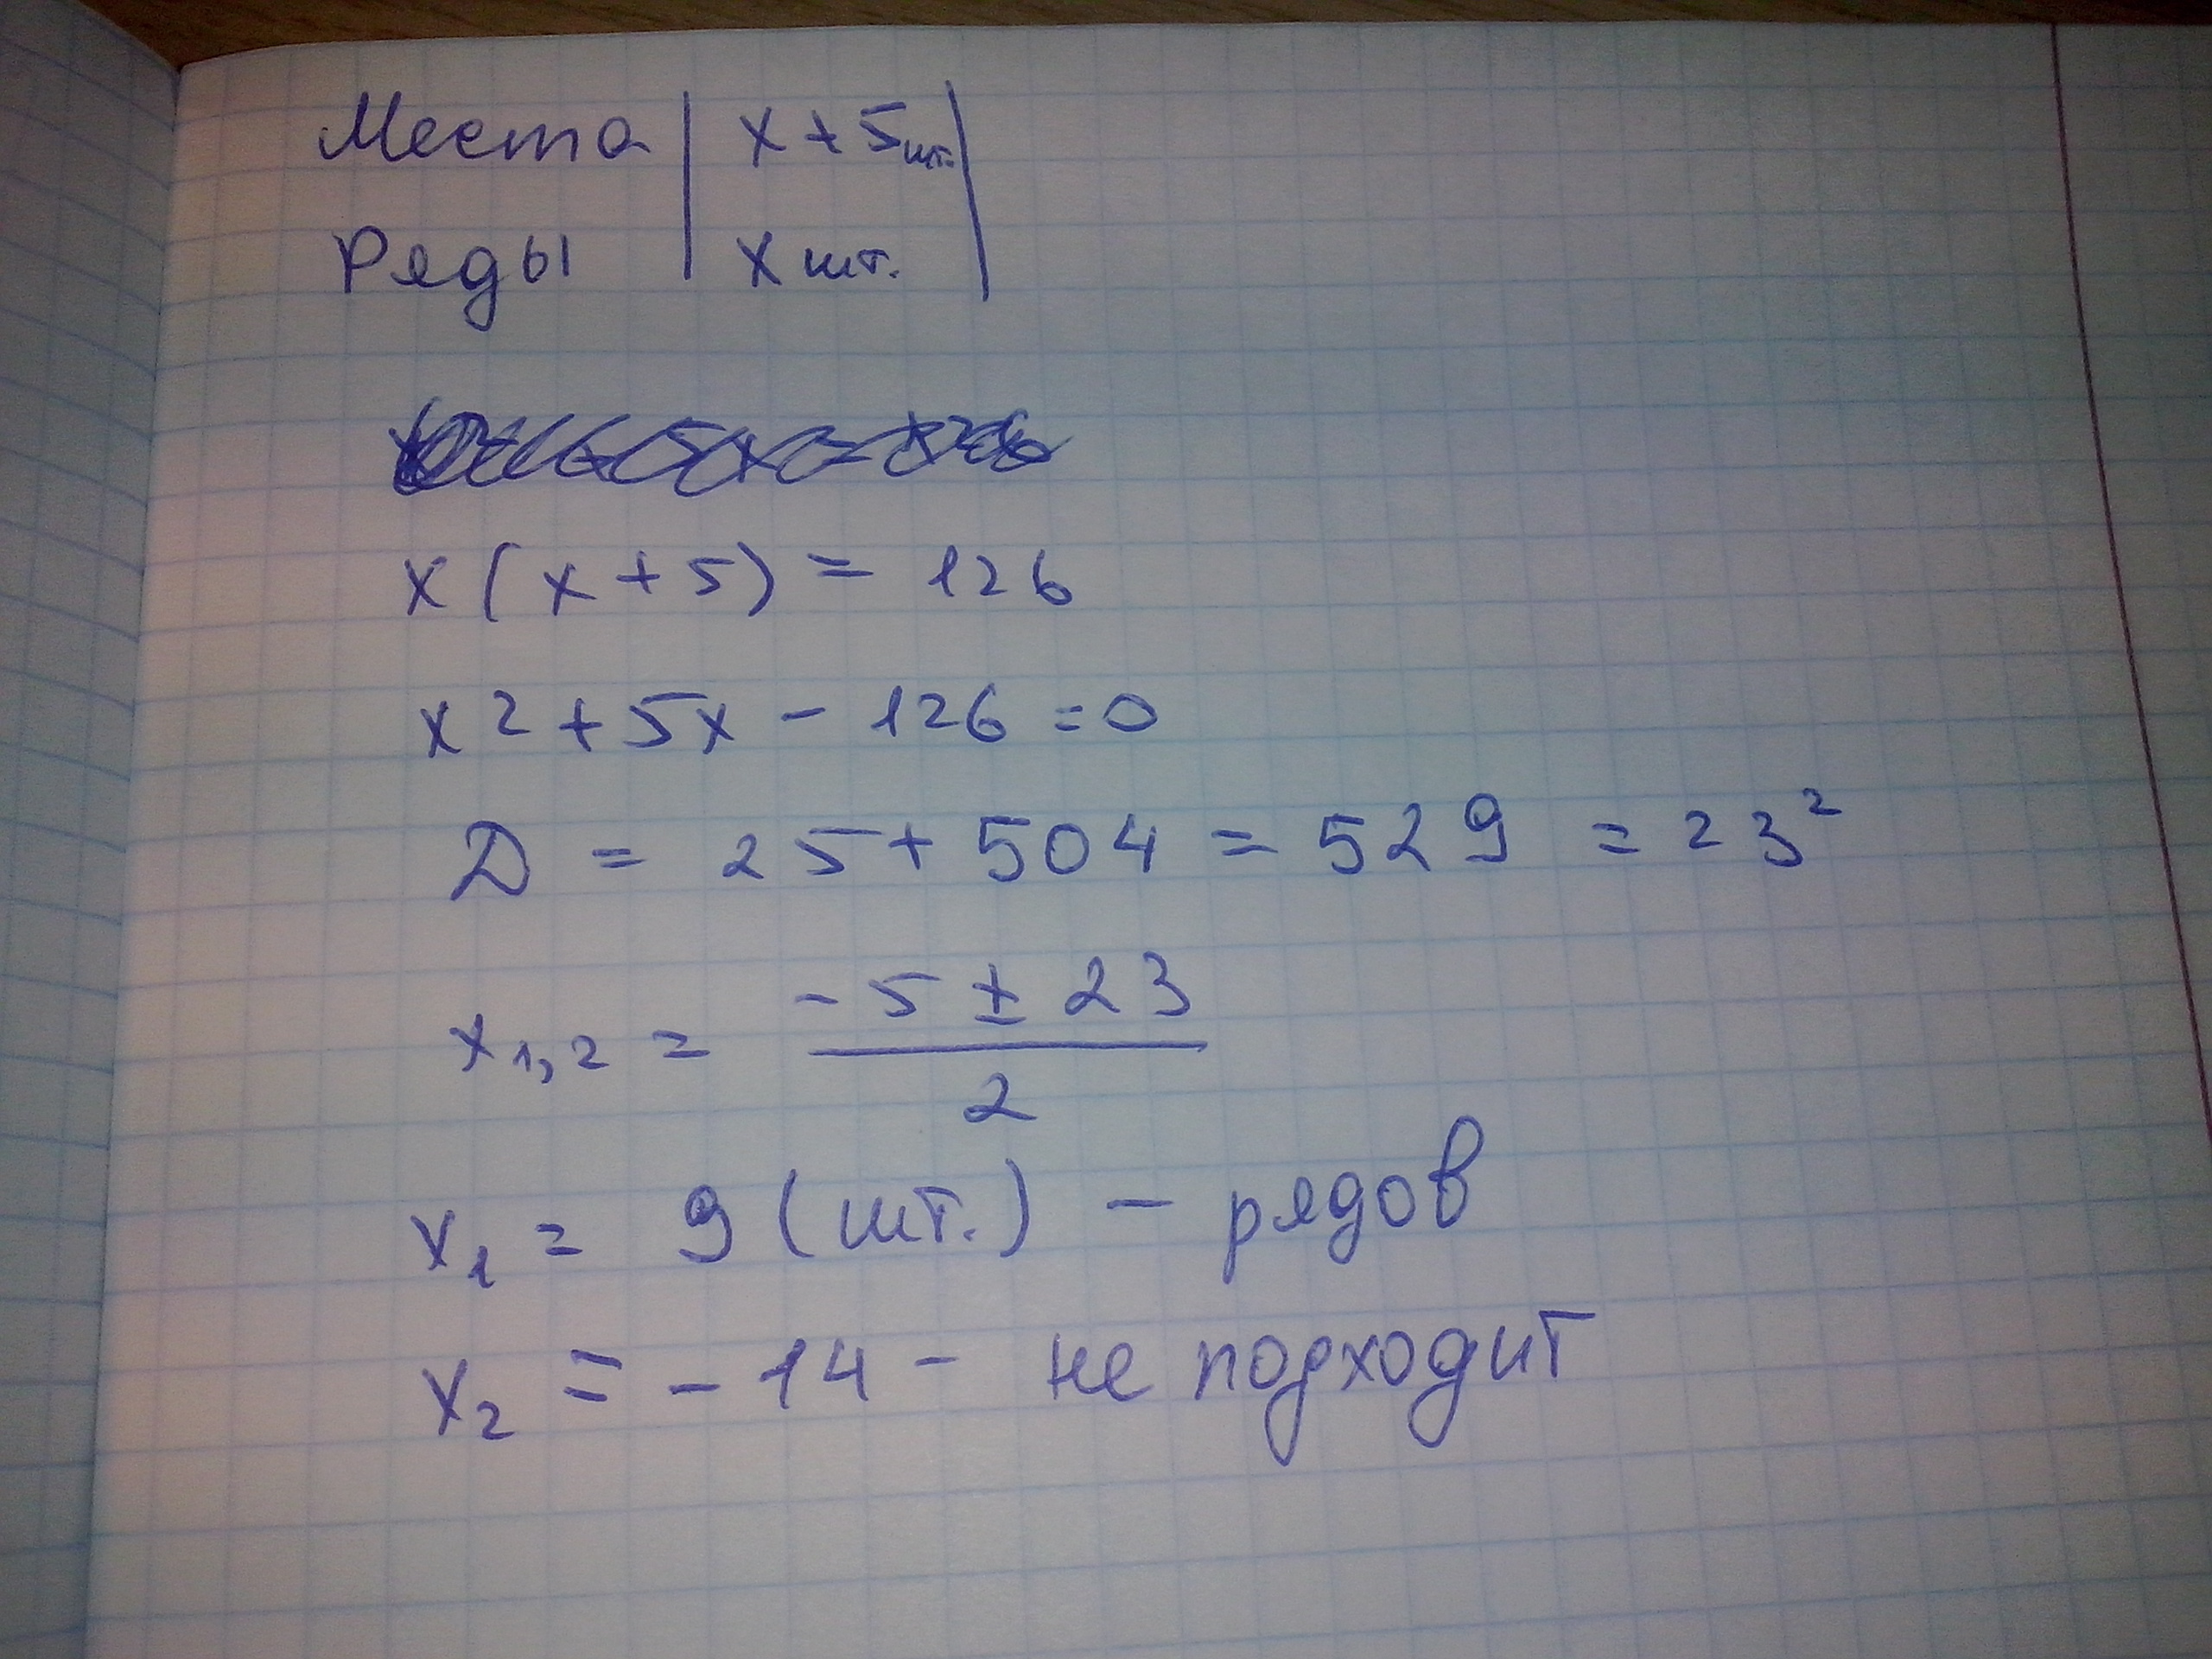 Места | x + 5 шт. |
Ряды | x шт. |
x ( x + 5 ) = 126
x2 + 5x - 126 = 0
D = 25 + 504 = 529 = 23²
x₁,₂ = (-5 ± 23) / 2
x₁ = 9 (шт.) - рядов
x₂ = - 14 - не подходит